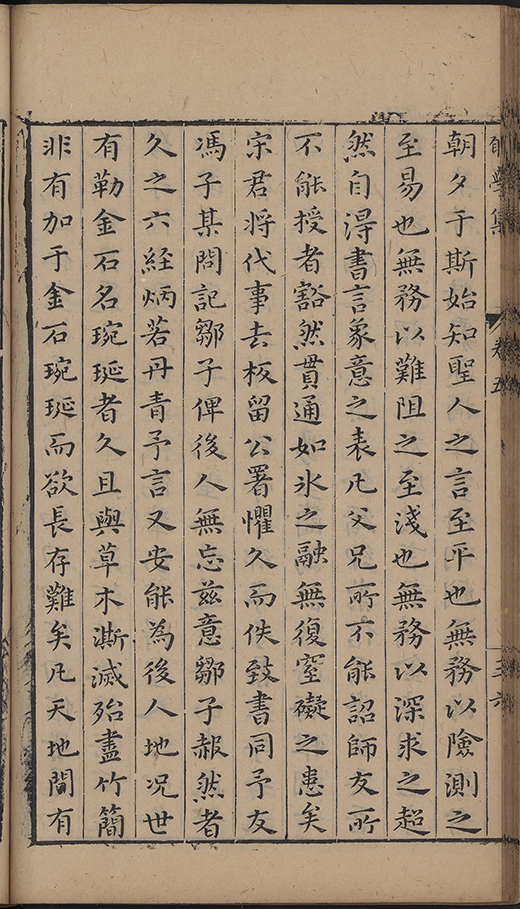 卷五
朝夕于斯始知聖人之言至平也無務以險測之
至易也無務以難阻之至淺也無務以深求之超
然自淂書言象意之表凢父兄所不能詔師友所
不能授者豁然貫通如氷之融無復窒礙之患矣
宋君将代事去板留公署懼久而佚致書同予友
馮子某問記鄒子俾後人無忘兹意鄒子赧然者
久之六經炳若丹青予言又安能為後人地况世
有勒金石名琬琰者久且與草木澌滅殆盡竹簡
非有加于金石琬琰而欲長存難矣凢天地間有